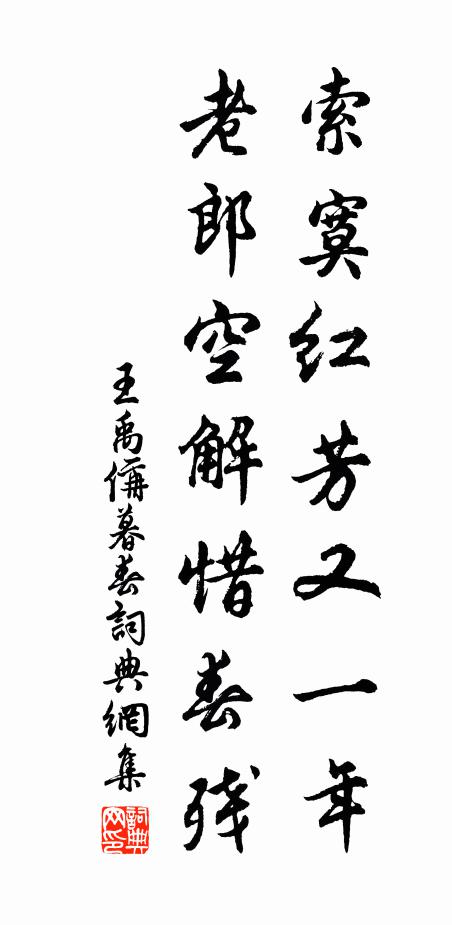 索寞红芳又一年
老郎空解惜春残
王禹偁暮春詞典網集
詞典
网印